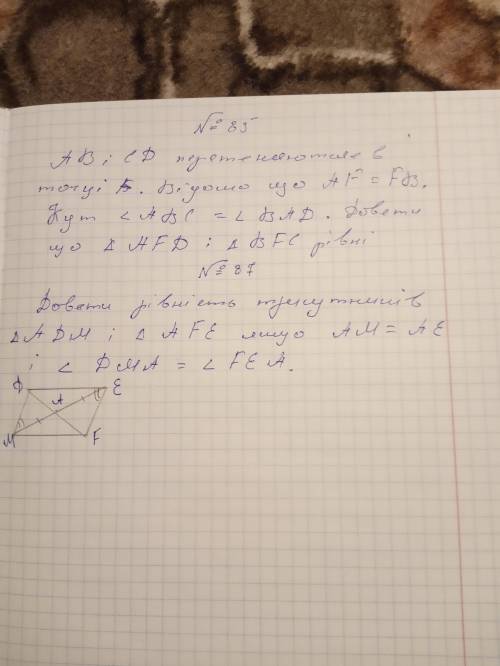 № 85
AB і CD перетинаються в
точці F. Відомо що AF = FB.
Кут ∠ABC = ∠BAD. Довести
що ∆ AFD і ∆ BFC рівні
№ 87
Довести рівність трикутників
∆ADM і ∆ AFE якщо AM = AE
і ∠ DMA = ∠ FEA.
D E
A
M F